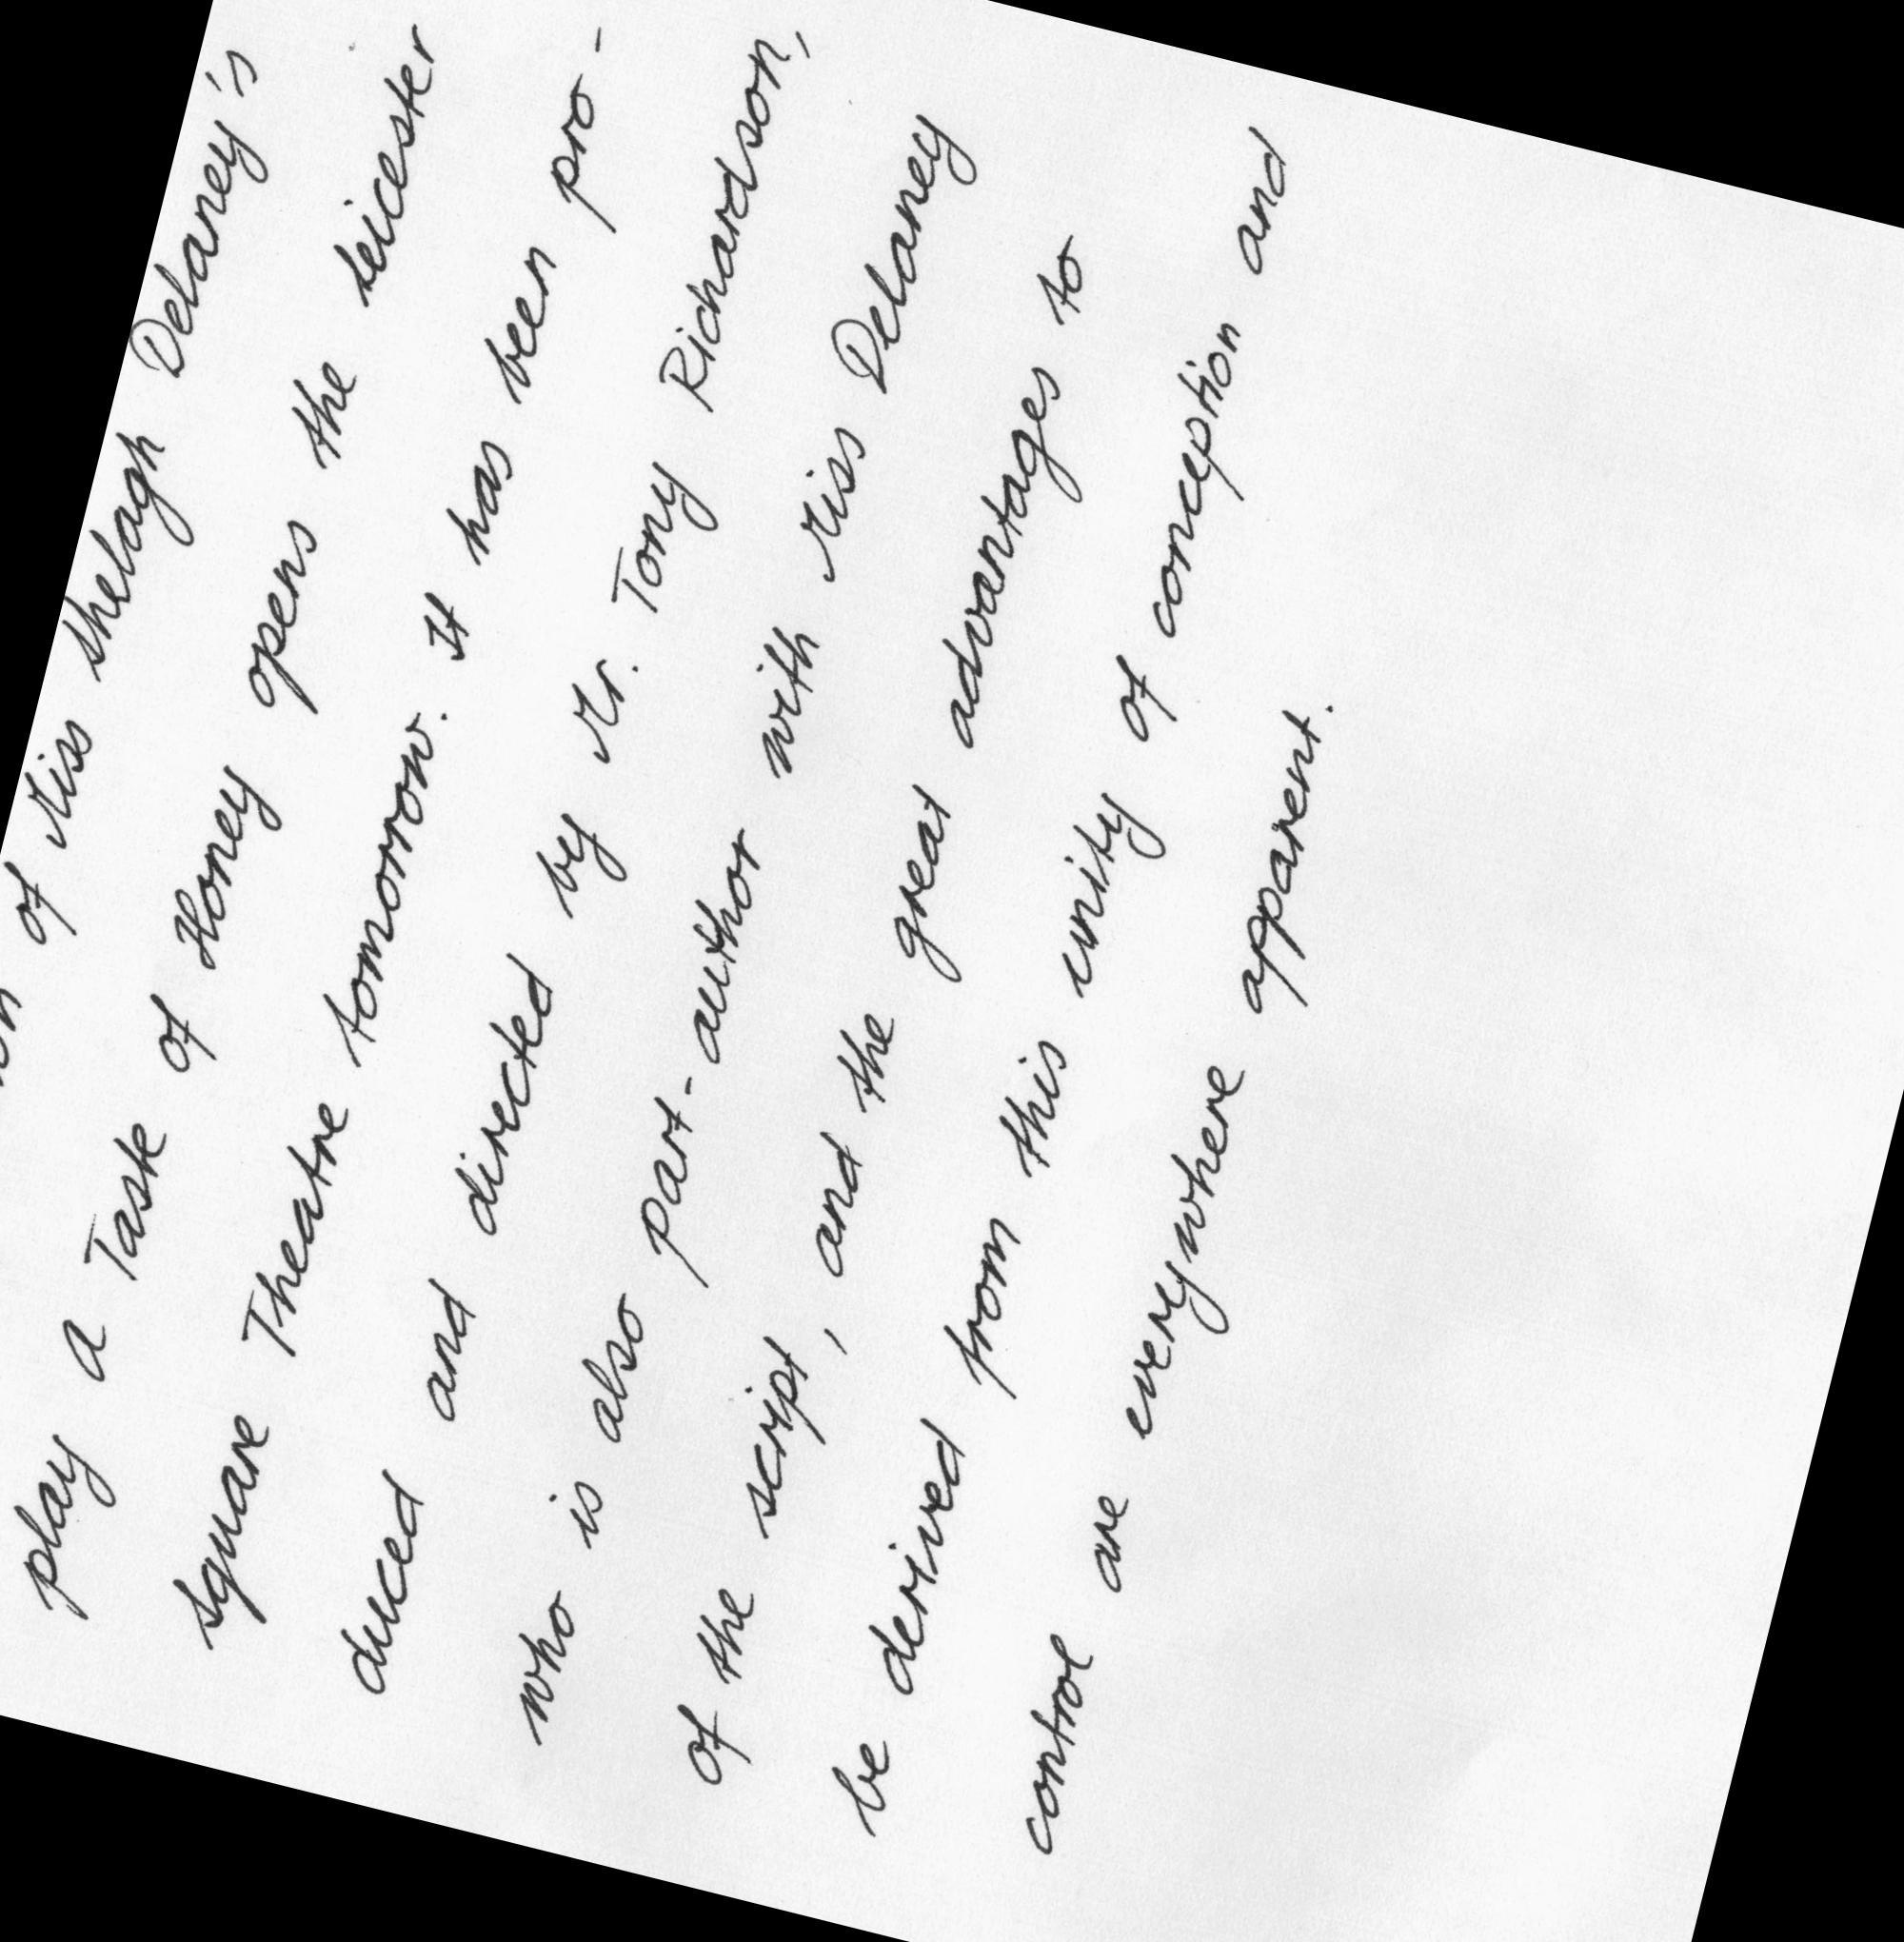 of Miss Shelagh Delaney's
play a Taste of Honey opens the Leicester
Square Theatre tomorrow. It has been pro-
duced and directed by Mr. Tony Richardson,
who is also part-author with Miss Delaney
of the script, and the great advantages to
be derived from this unity of conception and
control are everywhere apparent.